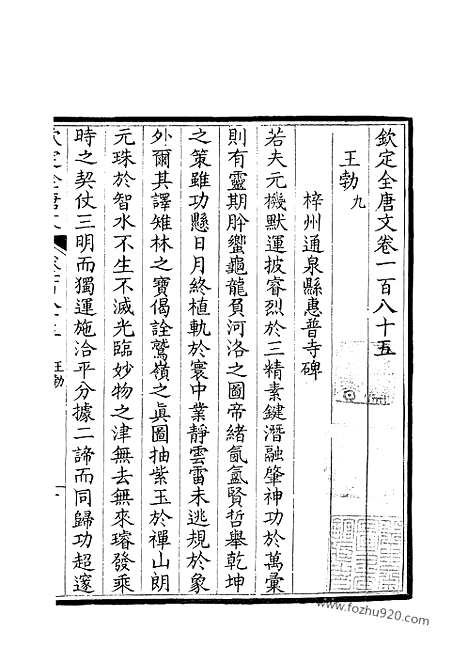 欽定全唐文卷一百八十五
王勃 九
梓州通泉縣惠普寺碑
若夫元機默運披睿烈於三精素鍵潛融肇神功於萬彙
則有靈期肸蠁龜龍負河洛之圖帝緒氤氳賢哲舉乾坤
之策雖功懸日月終植軌於寰中業靜雲雷未逃規於象
外爾其譯雉林之寶偈詮鷲嶺之眞圖抽紫玉於禪山朗
元珠於智水不生不滅光臨妙物之津無去無來璿發乘
時之契仗三明而獨運施洽平分據二諦而同歸功超邃
欽定全唐文
王勃
www.fozhu920.com